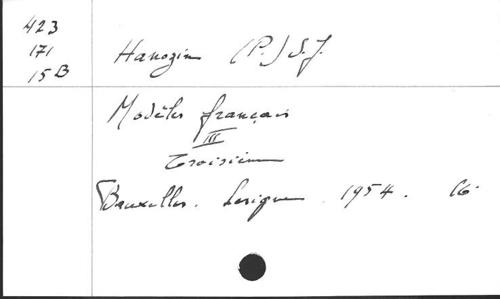 423
171
15B
Hanozin (P.) S.J.
Modèles français
III
Troisième
Bruxelles. Lesigne. 1954. 16-